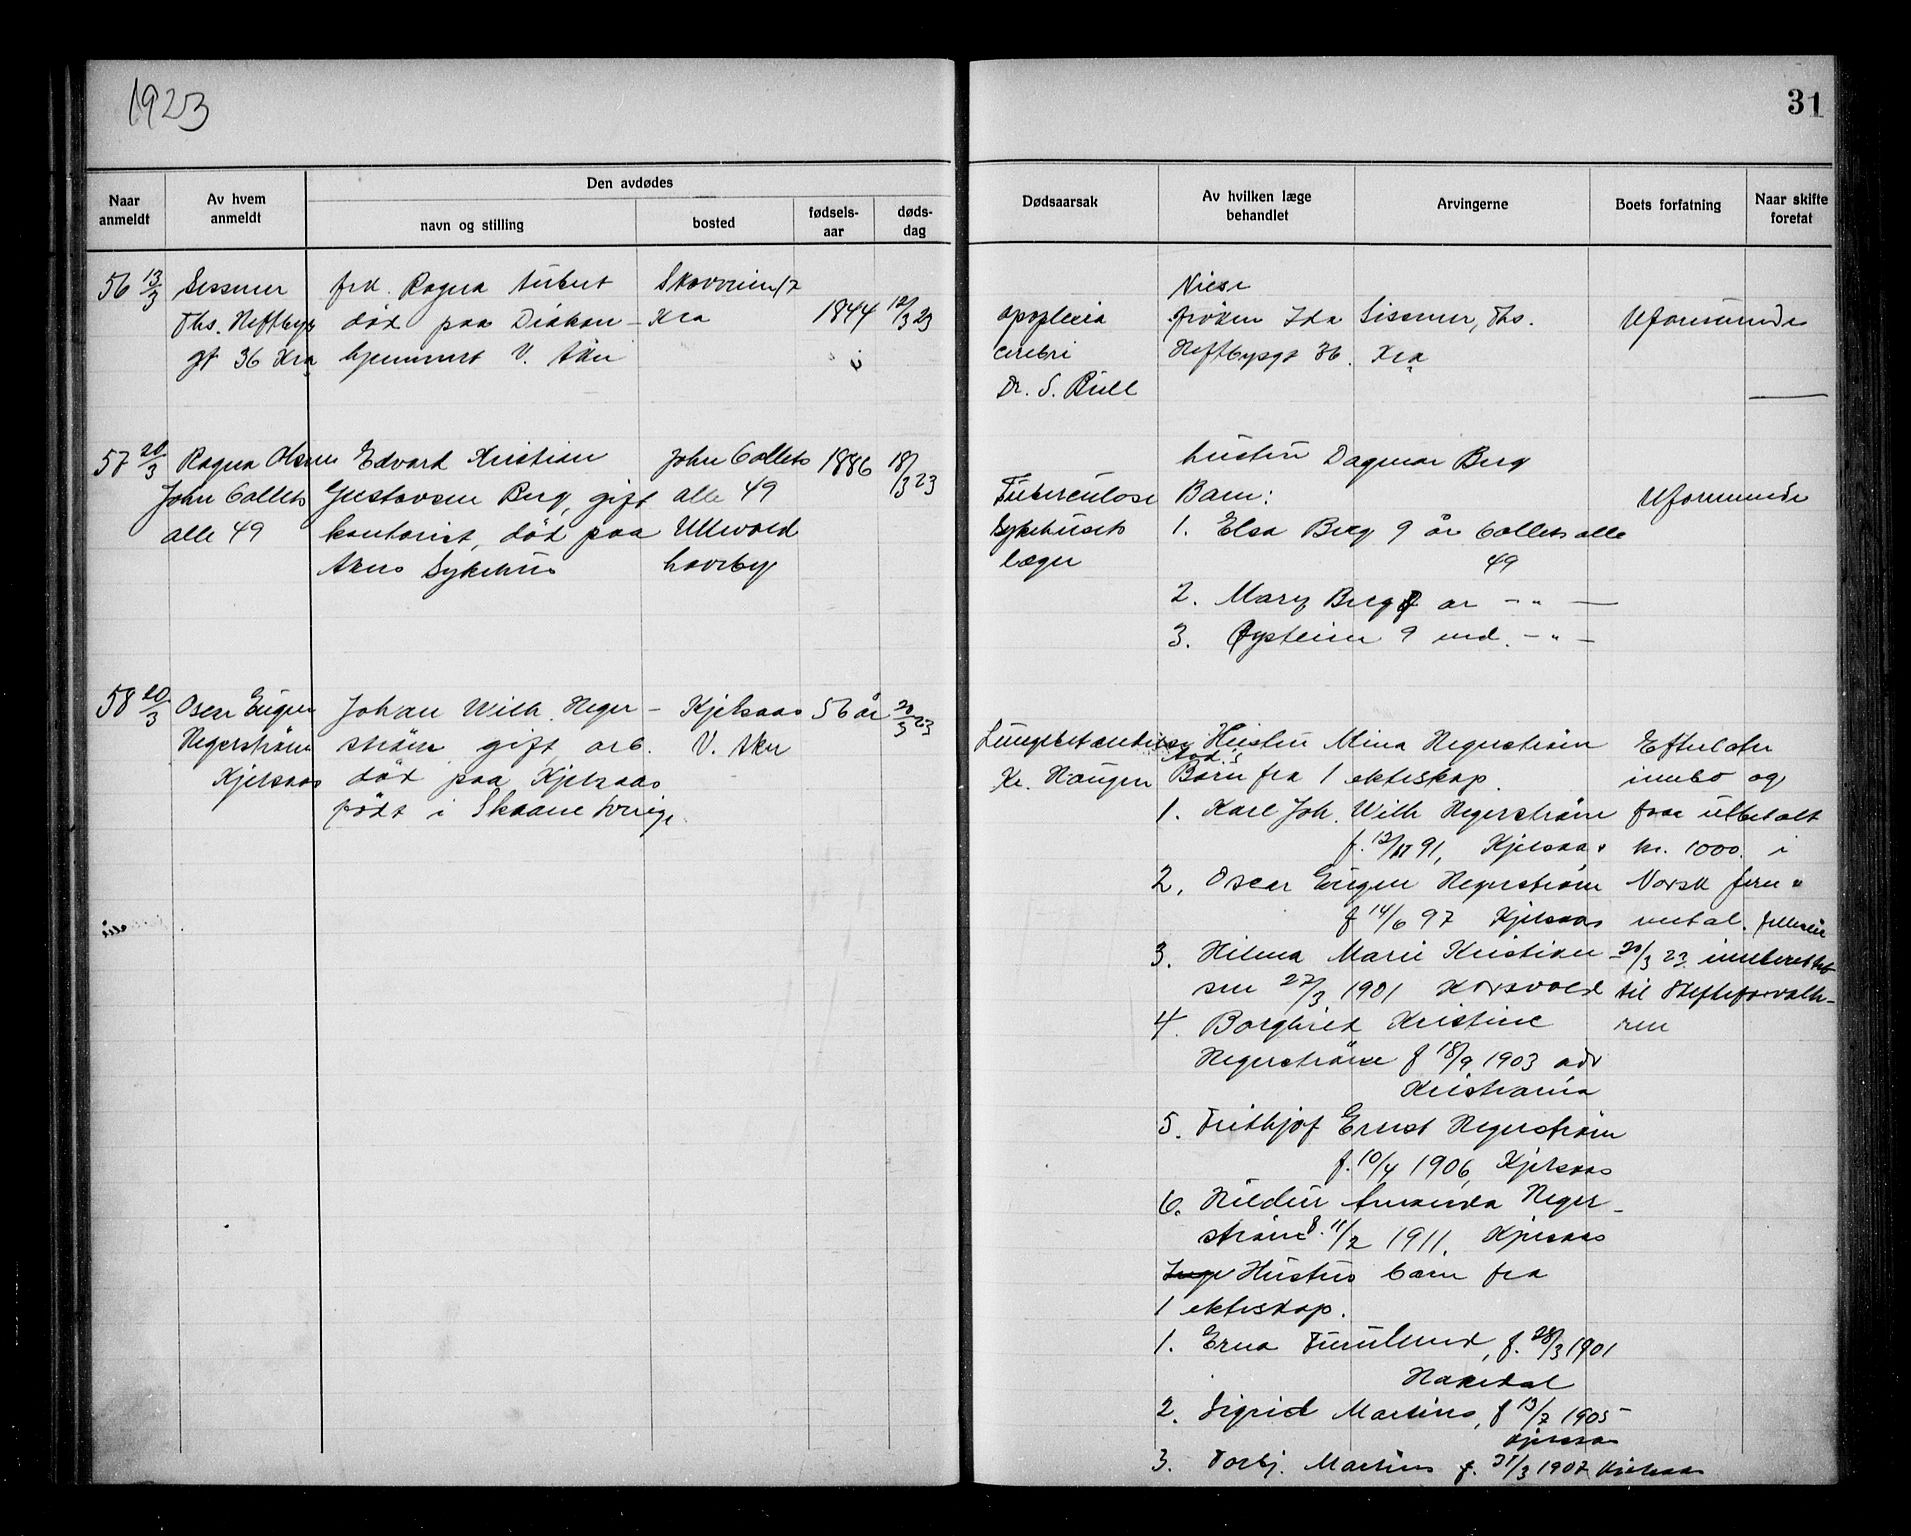 1923
31
Naar anmeldt
Av hvem anmeldt
Den avdødes
navn og stilling
bosted
fødsels-aar
døds-dag
Dødsaarsak
Av hvilken læge behandlet
Arvingerne
Boets forfatning
Naar skifte foretat
56 13/3
Sissener
Ths. Heftbys
gt 36 Kra
frk. Ragna Aubert
død paa Diakon-
hjemmet V. Aker
Skovveien
Kra
1844
12/3 23
apoplexia
cerebri
Dr. S. Bull
Niese
frøken Ida Sissener, Ths.
Heftbysgt 36. Kra
Uformuende
57 20/3
Ragna Olsen
John Collets
alle 49
Edvard Kristian
Gustavsen Berg, gift
kontorist, død paa
Akers Sykehus
John Collets
alle 49
Ullevold
haveby
1886
18/3 23
Tuberculose
Sykehusets
læger
hustru Dagmar Berg
Barn:
1. Elsa Berg 9 år Collets alle
49
2. Mary Berg år - " -
3. Øystein 9 md. - " -
Uformuende
58 20/3
Oscar Eugen
Hegerstrøm
Kjelsaas
Johan Wilh. Heger-
strøm, gift, arb.
død paa Kjelsaas
født i Skaane Sverige
Kjelsaas
V. Aker
56 år
20/3 23
Lungebetændelse
Kr. Haugen
Hustru Mina Hegerstrøm
Avd.s
Barn fra 1 ekteskap.
1. Karl Joh. Wilh Hegerstrøm
f. 12/11 91, Kjelsaas
2. Oscar Eugen Hegerstrøm
f 14/6 97 Kjelsaas
3. Hilma Marie Kristian-
sen 27/3 1901 Korsvold
4. Borghild Kristine
Hegerstrøm f 18/9 1903 adr
Kristiania
5. Frithjof Ernst Hegerstrøm
f. 10/4 1906, Kjelsaas
6. Hildur Amanda Heger-
strøm f. 11/2 1911. Kjelsaas
Hustrus barn fra
1 ekteskap.
1. Erna Furulund, f. 28/3 1901
Hakedal
2. Sigrid Martins, f 13/7 1905
Kjelsaas
3. Torbj. Martins f. 31/3 1907 Kjelsaas
Efterlater
innbo og
faar utbetalt
kr. 1000. i
Norsk jern &
metal.
20/3 23 innberettet
til Skifteforvalte-
ren